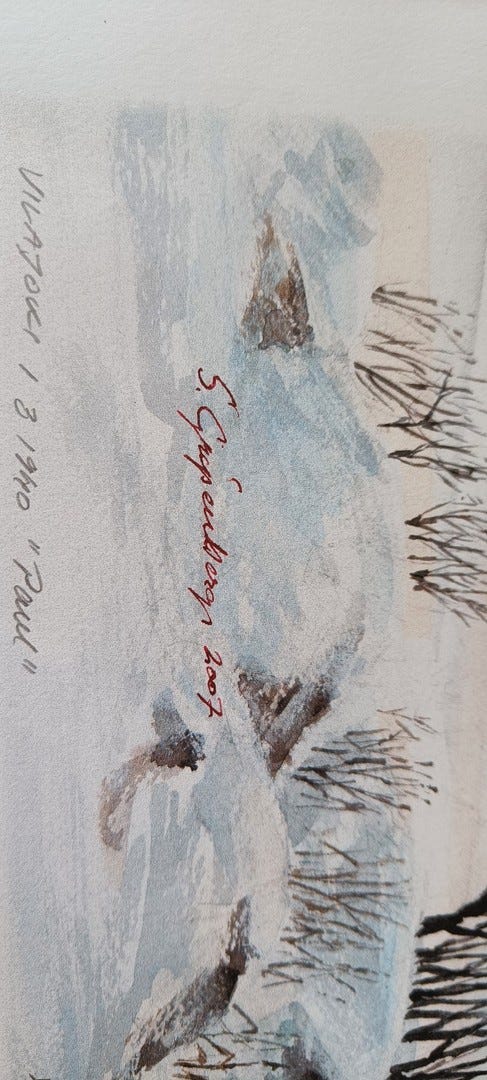 S. Gripenberg 2007
VILAJOKI 1 3 1940 "Paul"